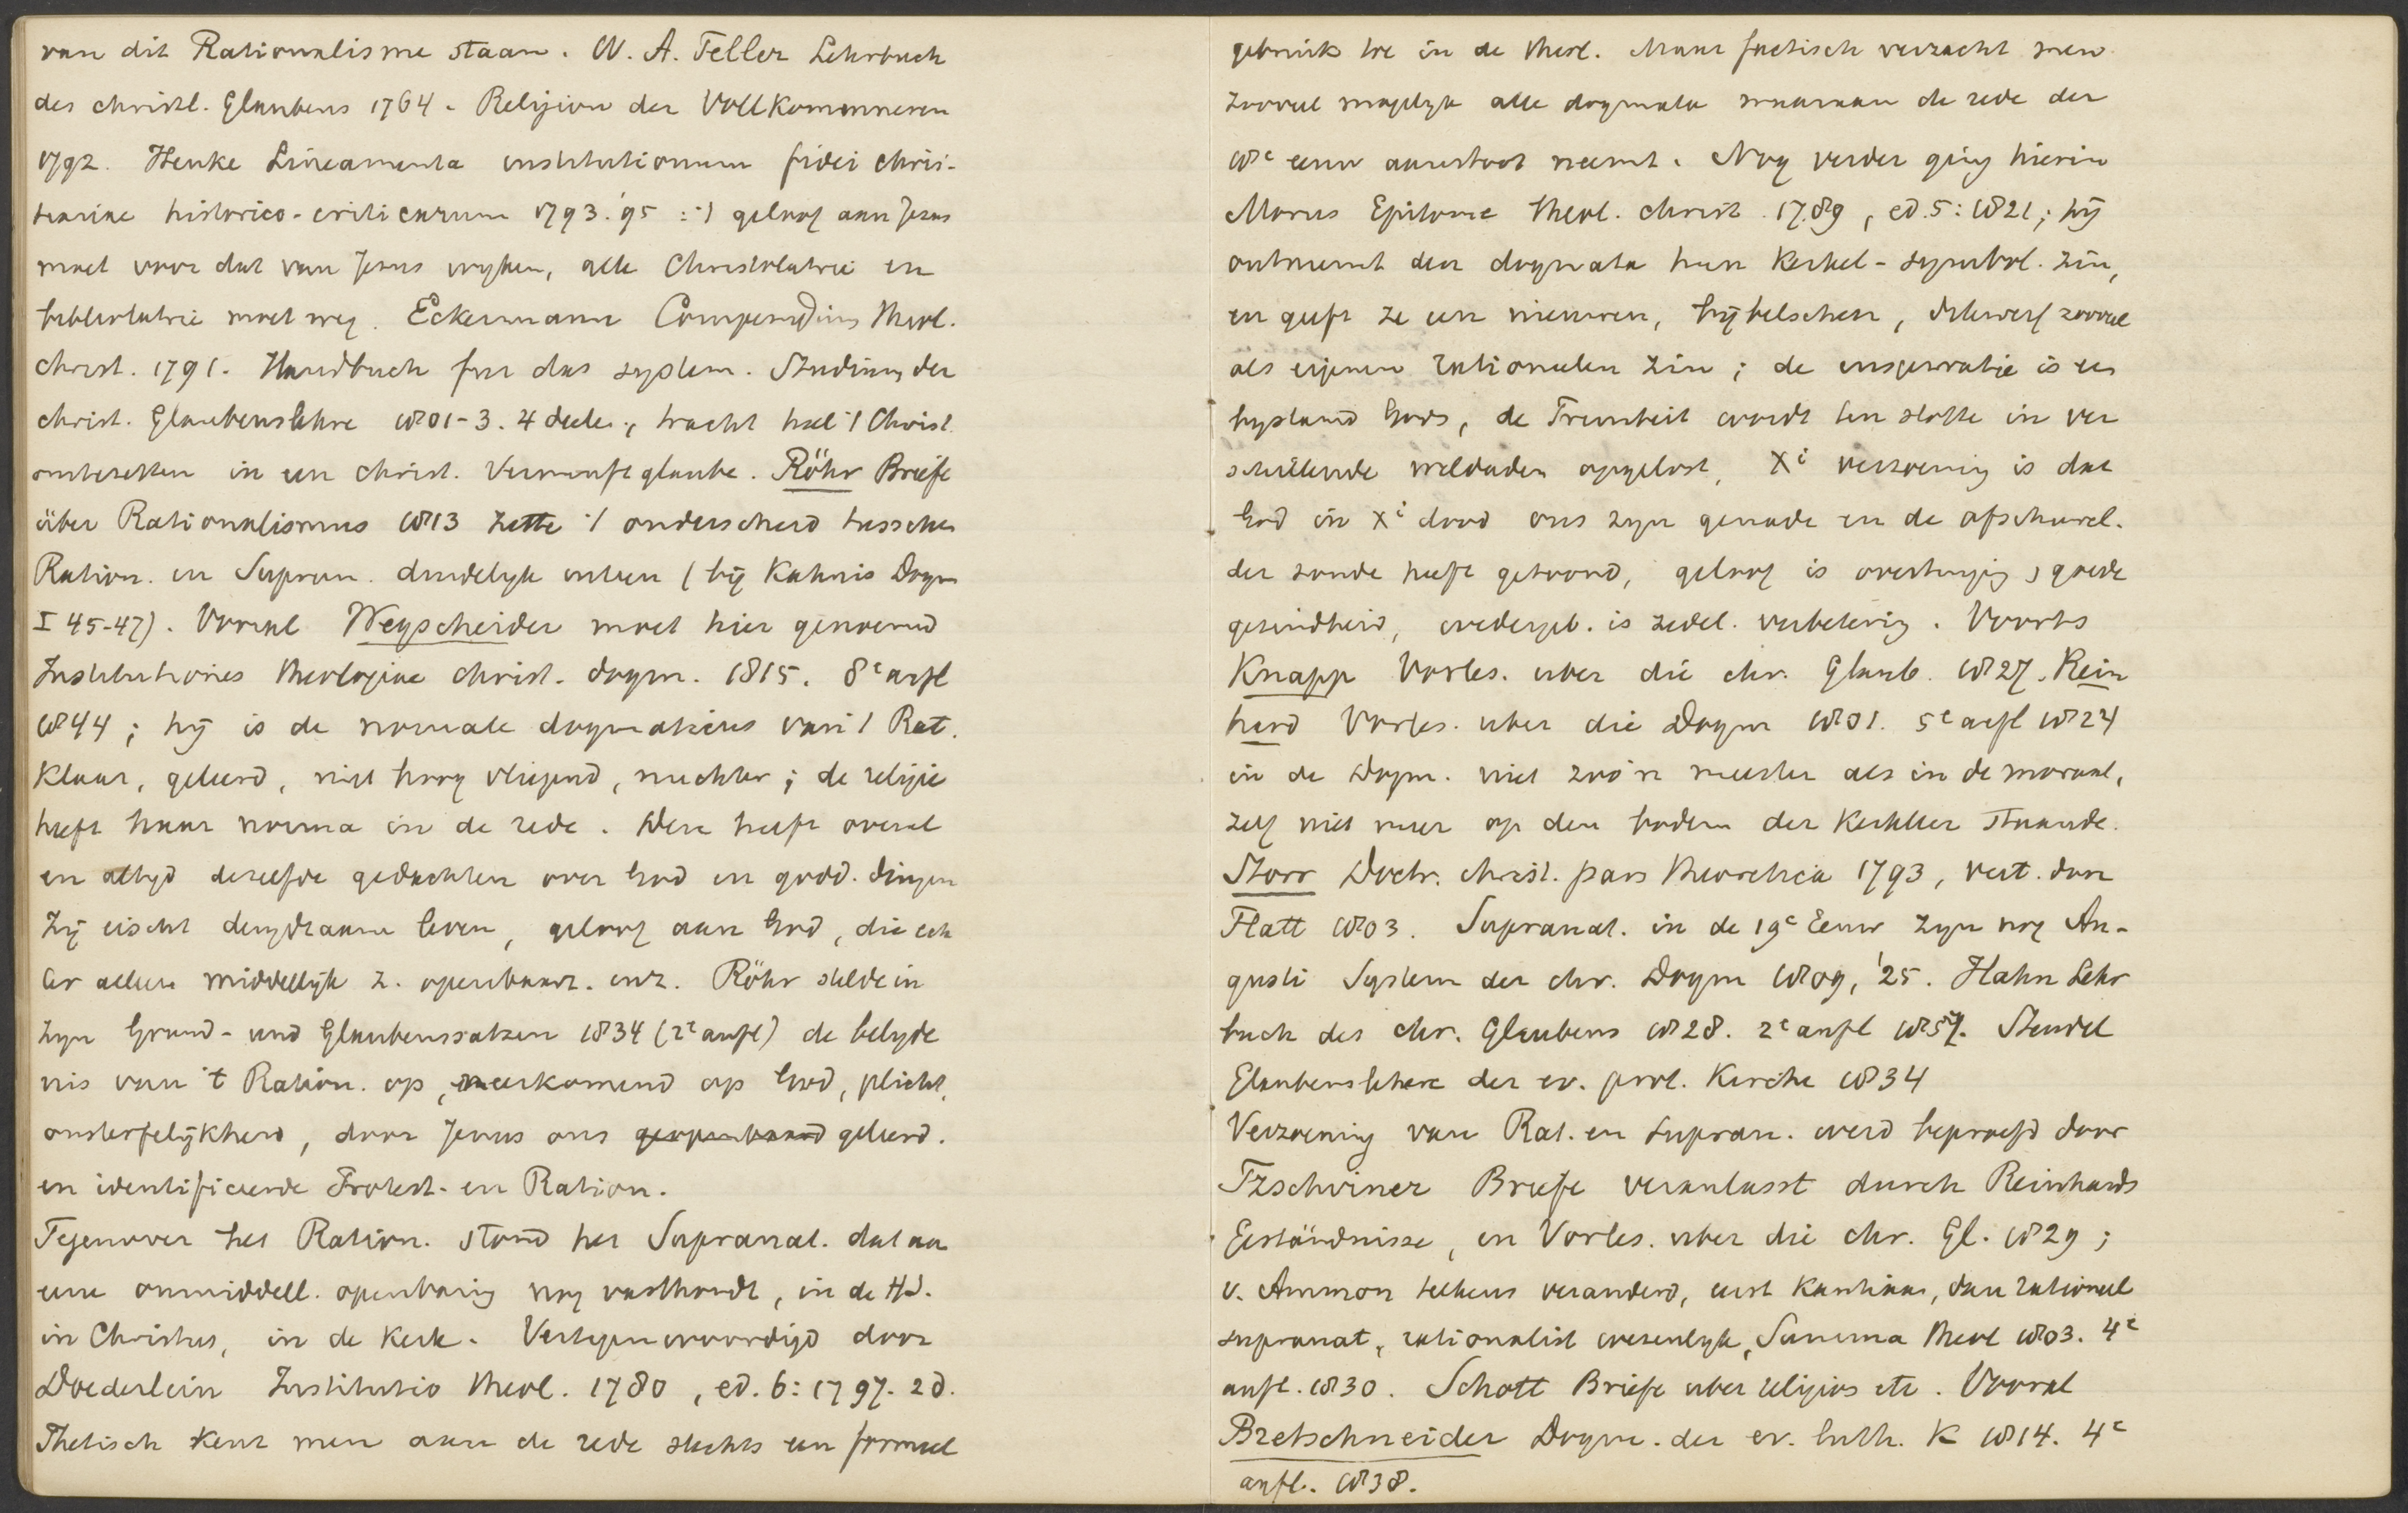 van dit Rationalisme staan. W. A. Teller Lehrbuch
des christl. Glaubens 1764. Religion der Vollkommneren
1792. Henke Lineamenta institutionum fidei chris-
tianae historico-criticarum 1793.'95 : 't geloof aan Jezus
moet voor dat van Jezus wyken, alle Christolatrie en
bibliolatrie moet weg. Eckermann Compendium theol.
christ. 1791. Handbuch fur das system. Studium der
christ. Glaubenslehre 1801-3. 4 deelen, tracht heel 't Christ.
omtezetten in een christ. Vernunftglaube. Röhr Briefe
über Rationalismus 1813 zette 't onderscheid tusschen
Ration. en Supran. duidelyk uiteen (bij Kahnis Dogm
I 45-47). Vooral Wegscheider moet hier genoemd
Institutiones theologiae christ. dogm. 1815. 8e aufl
1844; hij is de normale dogmaticus van 't Rat.
Klaar, geleerd, niet hoog vliegend, nuchter; de religie
heeft haar norma in de rede. Deze heeft overal
en altyd dezelfde gedachten over God en godd. dingen
Zij eischt deugdzaam leven, geloof aan God, die ech
ter alleen middellijk z. openbaart. enz. Röhr stelde in
zyn Grund- und Glaubenssatzen 1834 (2e aufl) de belyde
nis van 't Ration. op, neerkomend op God, plicht,
onsterfelijkheid, door Jezus ons geopenbaard geleerd.
en identificeerde Protest. en Ration.
Tegenover het Ration. stond het Supranat. dat aan
eene onmiddell. openbaring nog vasthoudt, in de H.S.
in Christus, in de Kerk. Vertegenwoordigd door
Doederlein Institutio theol. 1780, ed. 6: 1797. 2 d.
Thetisch kent men aan de rede slechts een formeel
gebruik toe in de theol. Maar factisch verzacht men
zooveel mogelyk alle dogmata waaraan de rede der
18e eeuw aanstoot neemt. Nog verder ging hierin
Morus Epitome theol. christ. 1789, ed. 5: 1821; hij
ontneemt den dogmata hun Kerkel-symbol. zin,
en geeft ze een nieuwen, bijbelschen, dikwerf zooveel
als eigenen rationeelen zin; de inspiratie is een
bystand Gods, de Triniteit wordt ten slotte in ver
schillende weldaden opgelost, Xi verzoening is dat
God in Xi dood ons zyn genade en de afschuwel.
der zonde heeft getoond, geloof is overtuiging, goede
gezindheid, wedergeb. is zedel. verbetering. Voorts
Knapp Vorles. uber die chr. Glaub. 1827. Rein
hard Vorles. uber die Dogm 1801. 5e aufl 1824
in de Dogm. niet zoo'n meester als in de moraal,
zelf niet meer op den bodem der Kerkleer staande.
Storr Doctr. christ. pars theoretica 1793, vert. door
Flatt 1803. Supranat. in de 19e Eeuw zyn nog Au-
gusti System der chr. Dogm 1809, '25. Hahn Lehr
buch des chr. Glaubens 1828. 2e aufl 1857. Steudel
Glaubenslehre der ev. prot. Kirche 1834
Verzoening van Rat. en Supran. werd beproefd door
Tzschirner Briefe veranlasst durch Reinhards
Geständnisse, en Vorles. uber die chr. Gl. 1829;
v. Ammon telkens veranderd, eerst Kantiaan, dan rationeel
supranat, rationalist wezenlyk, Summa theol 1803. 4e
aufl. 1830. Schott Briefe uber religios etc. Vooral
Bretschneider Dogm. der ev. luth. K 1814. 4e
aufl. 1838.